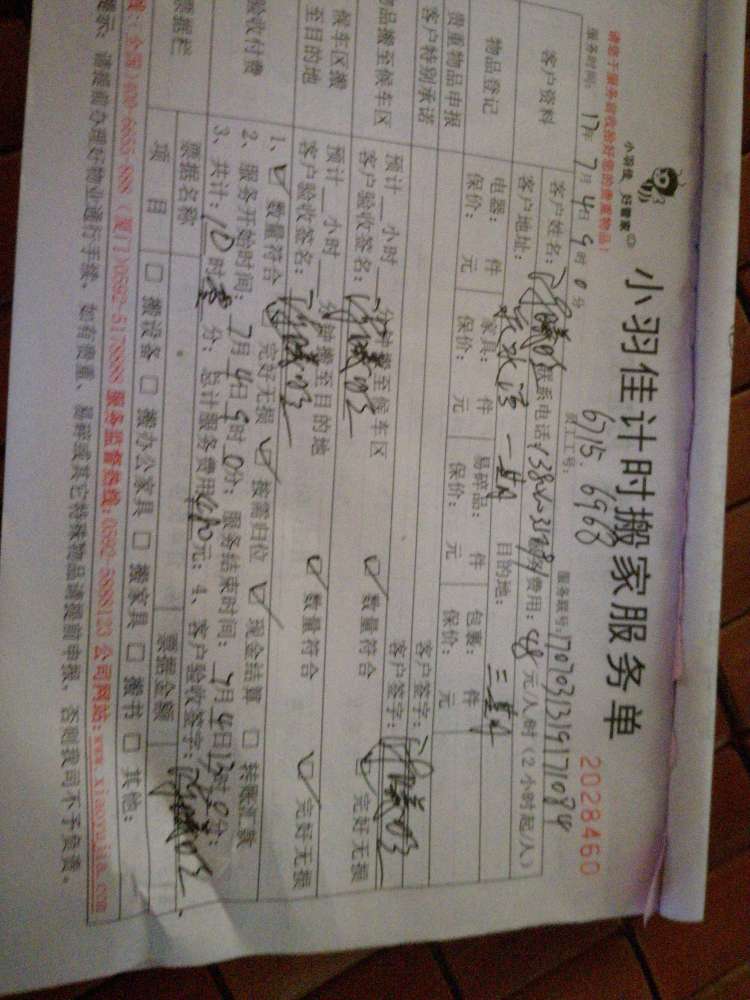 小羽佳计时搬家服务单
2028460
小羽佳 好管家
6715. 6968
员工工号:
请您于服务前收拾好您的贵重物品!
服务时间: 17年7月4日9时0分
服务联号: 170703131917084
客户资料
客户姓名: 联系电话: 服务费用: 48元/人时(2小时起/人)
客户地址: 目的地:
物品登记
电器: 件 家具: 件 易碎品: 件 包裹: 件
保价: 元 保价: 元 保价: 元 保价: 元
贵重物品申报 客户签字:
客户特别承诺 客户签字:
物品搬至候车区
预计__小时__分钟搬至候车区
客户验收签名: 数量符合 完好无损
候车区搬至目的地
预计__小时__分钟搬至目的地
客户验收签名: 数量符合 完好无损
验收付费
1、 数量符合 完好无损 按需归位 现金结算 □ 转账汇款
2、服务开始时间: 7月4日9时0分; 服务结束时间: 7月4日13时0分;
3、共计: 10时 分; 总计服务费用480元; 4、客户验收签字:
票据栏
票据名称 票据金额
项目 □ 搬设备 □ 搬办公家具 □ 搬家具 □ 搬书 □ 其他:
线:(全国)400-6655-888 (厦门)0592-5178888 服务监督热线:0592-5888123 公司网站:www.xiaoyujia.com
提示: 请提前办理好物业通行手续, 如有贵重、易碎或其它特殊物品请提前申报, 否则我司不予负责。